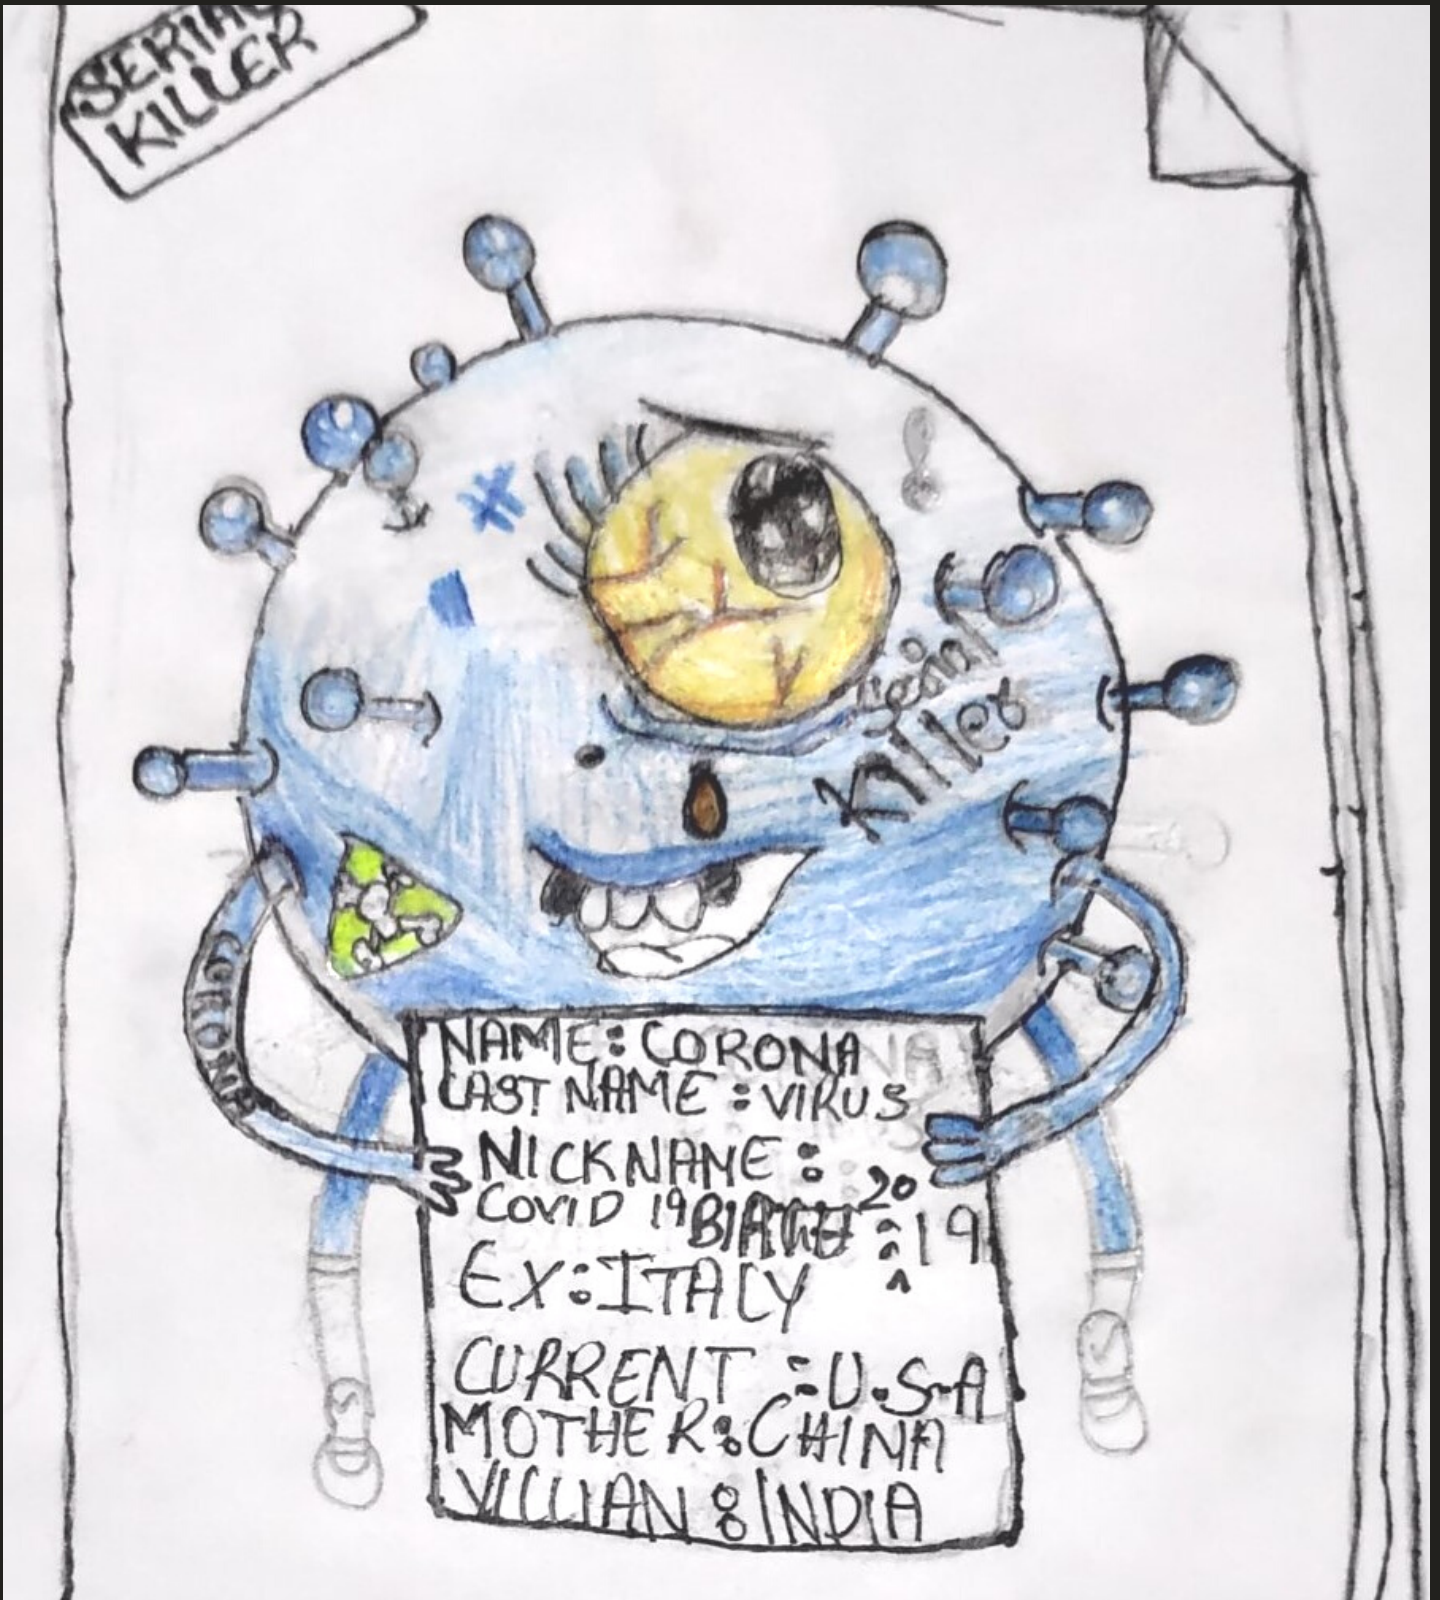 SERIAL
KILLER
Serial
Killer
CORONA
NAME: CORONA
LAST NAME: VIRUS
NICKNAME:
COVID 19
20
:19
EX: ITALY
CURRENT: U.S.A
MOTHER: CHINA
VILLIAN: INDIA